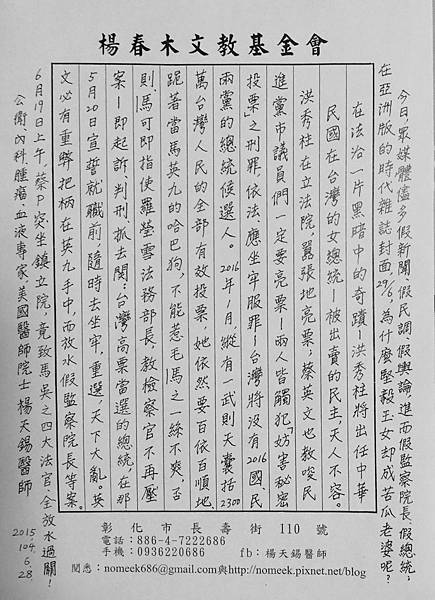 楊春木文教基金會
今日，眾媒體儘多假新聞、假民調、假輿論，進而假監察院長、假總統；
在亞洲版的時代雜誌封面29/6，為什麼堅毅王女却成苦瓜老婆呢？
在法治一片黑暗中的奇蹟，洪秀柱將出任中華
民國在台灣的女總統－被出賣的民主，天人不容。
洪秀柱在立法院，囂張地亮票；蔡英文也教唆民
進黨市議員們一定要亮票－兩人皆觸犯「妨害秘密
投票」之刑罪，依法，應坐牢服罪－台灣將没有2016國、民
兩黨的總統候選人。2016年1月，縱有一武則天囊括2300
萬台灣人民的全部有效投票，她依然要百依百順地
跪著當馬英九的哈巴狗，不能惹毛馬之一絲不爽，否
則，馬可即指使羅瑩雪法務部長，教檢察官不再壓
案－即起訴、判刑、抓去関，台灣高票當選的總統，在那
5月20日宣誓就職前，隨時去坐牢，重選，天下大亂。英
文必有重弊把柄在英九手中，而放水假監察院長等案。
6月19日上午，蔡P突坐鎮立院，竟致馬吳之四大法官全放水過關！
公衛、内科腫瘤、血液專家美國醫師院士楊天錫醫師
2015.
104.6.28
彰化市長壽街 110 號
電話：886-4-7222686
手機：0936220686
fb: 楊天錫醫師
閱悉：nomeek686@gmail.com與http://nomeek.pixnet.net/blog